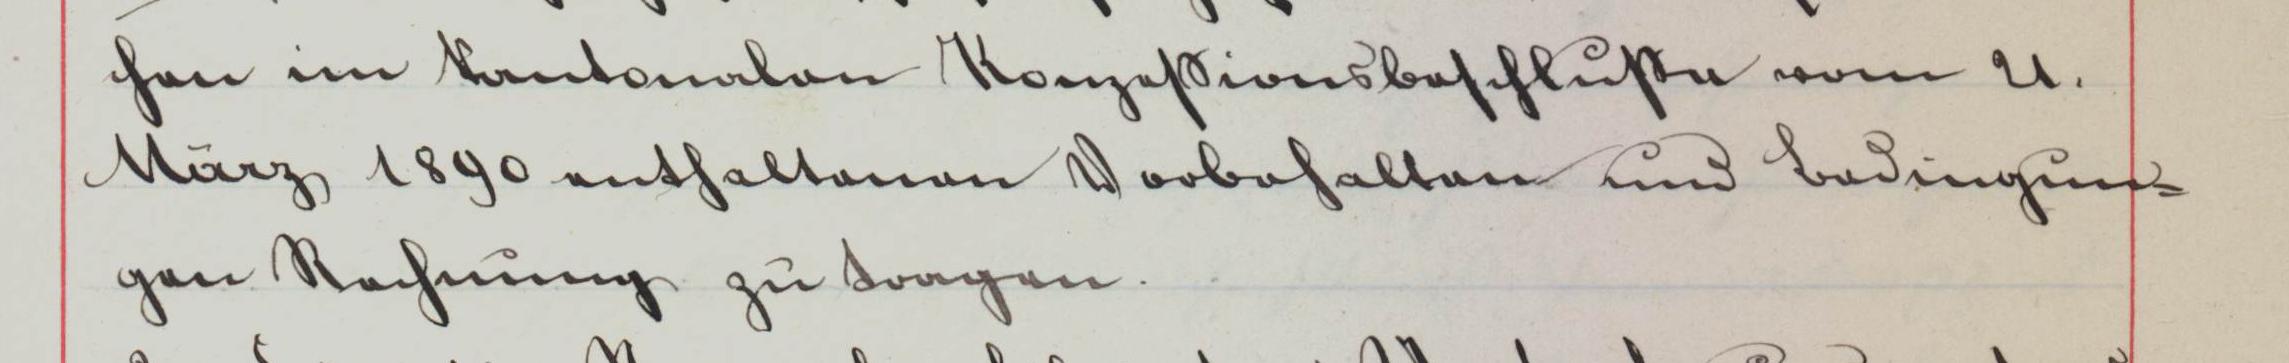 chen im kantonalen Konzessionsbeschlusse vom 21.
März 1890 enthaltenen Vorbehalten und Bedingun-
gen Rechnung zu tragen.